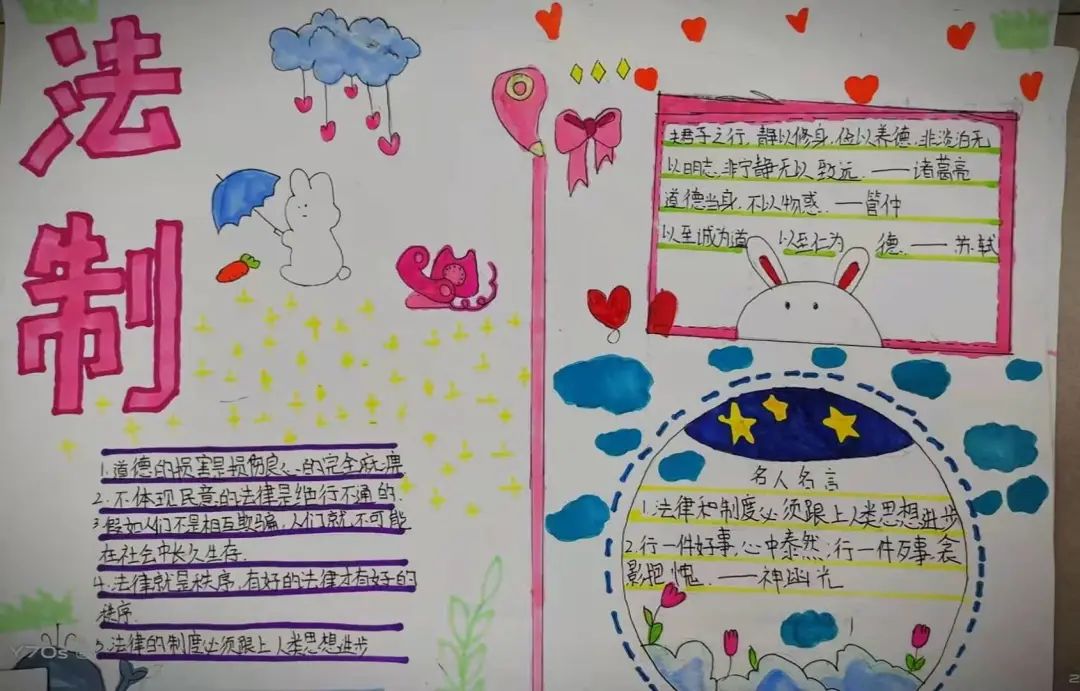 法
制
夫君子之行，静以修身，俭以养德，非淡泊无
以明志，非宁静无以致远．——诸葛亮
道德当身，不以物惑．——管仲
以至诚为道 以至仁为 德．——苏轼
1.道德的损害是损伤良心的完全麻
2.不体现民意的法律是绝行不通的．
3.假如人们不是相互欺骗，人们就不可能
在社会中长久生存．
4.法律就是秩序，有好的法律才有好的
秩序．
5.法律的制度必须跟上人类思想进步
名人名言
1.法律和制度必须跟上人类思想进步
2.行一件好事，心中泰然；行一件歹事，衾
影抱愧．——神涵光
Y70s